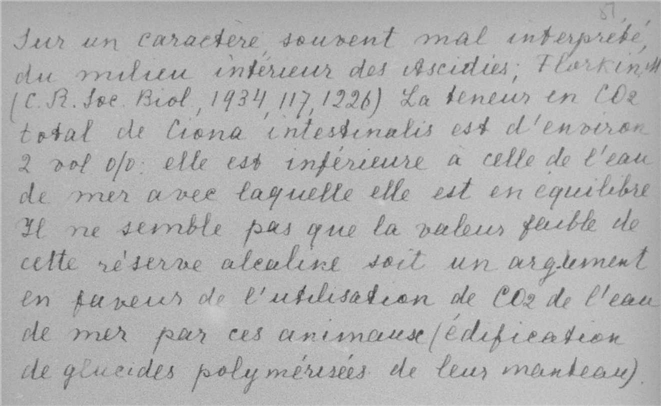 Sur un caractère souvent mal interprété,
du milieu intérieur des Ascidies; Florkin, M
(C. R. Soc. Biol, 1934, 117, 1226) La teneur en CO2
total de Ciona intestinalis est d'environ
2 vol o/o: elle est inférieure à celle de l'eau
de mer avec laquelle elle est en équilibre
Il ne semble pas que la valeur faible de
cette réserve alcaline soit un argument
en faveur de l'utilisation de CO2 de l'eau
de mer par ces animaux (édification
de glucides polymérisées de leur manteau).